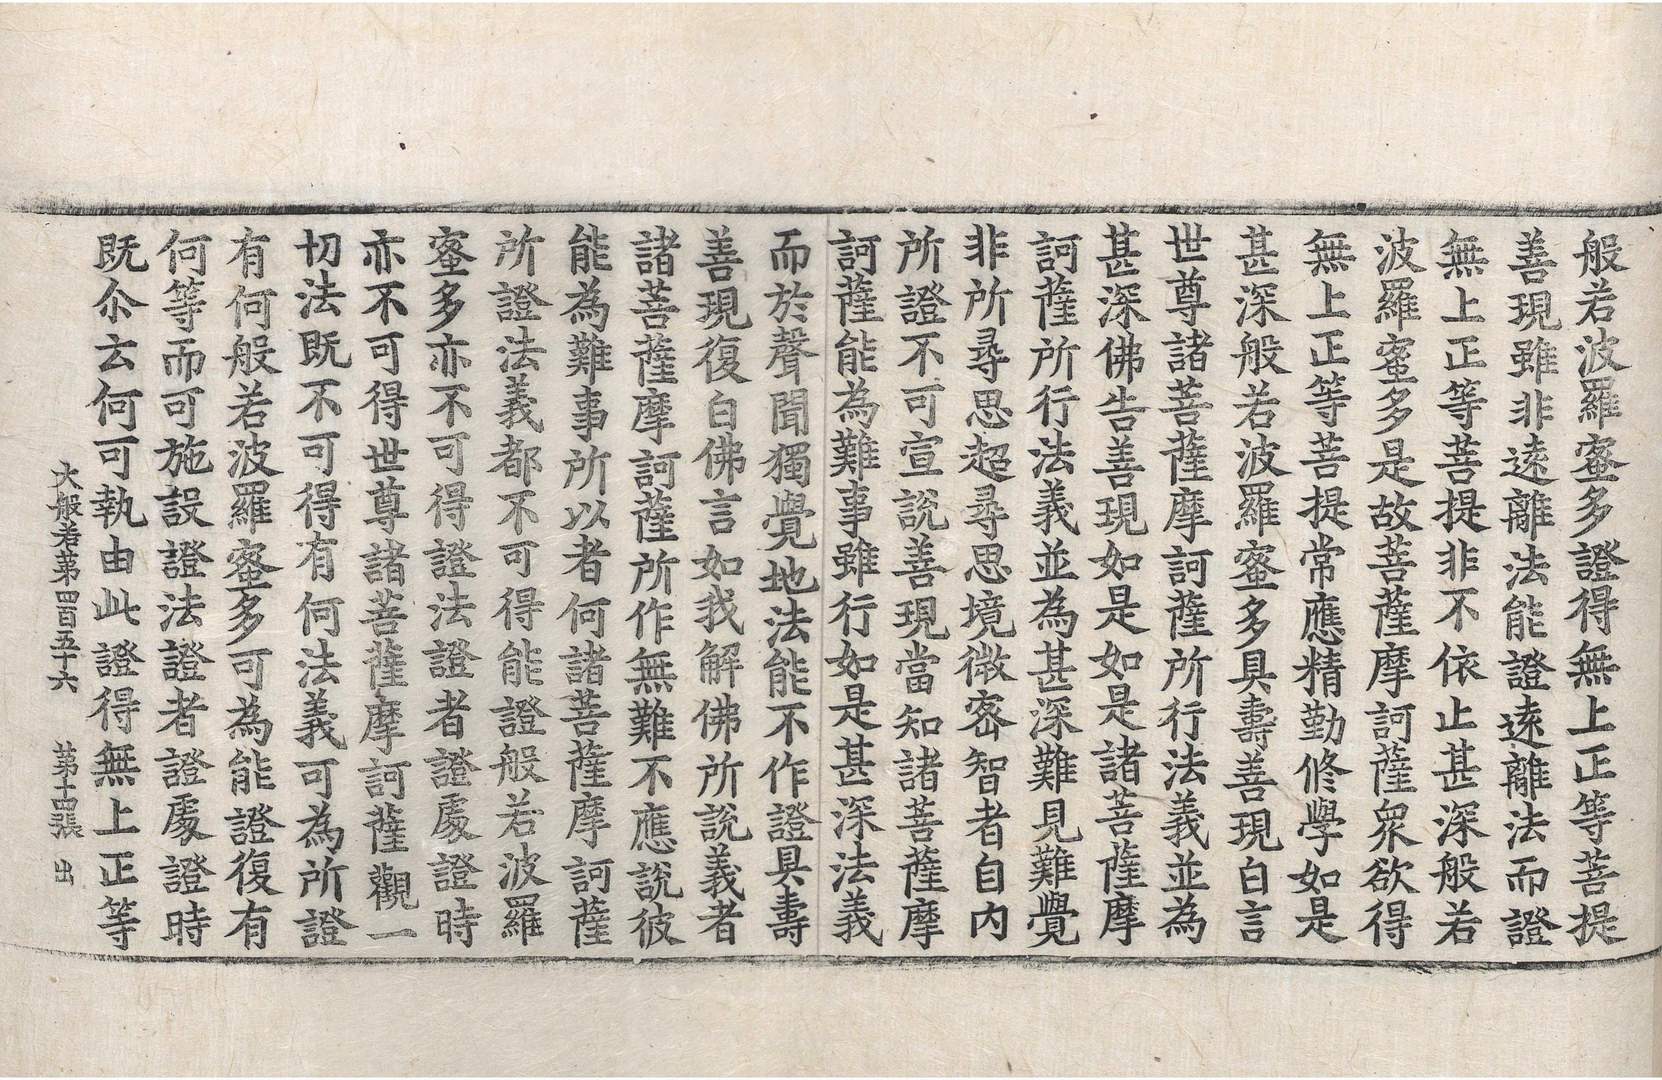 般若波羅蜜多證得無上正等菩提
善現雖非遠離法能證遠離法而證
無上正等菩提非不依止甚深般若
波羅蜜多是故菩薩摩訶薩衆欲得
無上正等菩提常應精勤修學如是
甚深般若波羅蜜多具壽善現白言
世尊諸菩薩摩訶薩所行法義並為
甚深佛告善現如是如是諸菩薩摩
訶薩所行法義並為甚深難見難覺
非所尋思超尋思境微密智者自内
所證不可宣說善現當知諸菩薩摩
訶薩能為難事雖行如是甚深法義
而於聲聞獨覺地法能不作證具壽
善現復白佛言如我解佛所說義者
諸菩薩摩訶薩所作無難不應說彼
能為難事所以者何諸菩薩摩訶薩
所證法義都不可得能證般若波羅
蜜多亦不可得證法證者證處證時
亦不可得世尊諸菩薩摩訶薩觀一
切法既不可得有何法義可為所證
有何般若波羅蜜多可為能證復有
何等而可施設證法證者證處證時
既尒云何可執由此證得無上正等
大般若第四百五十六　第十四張　出